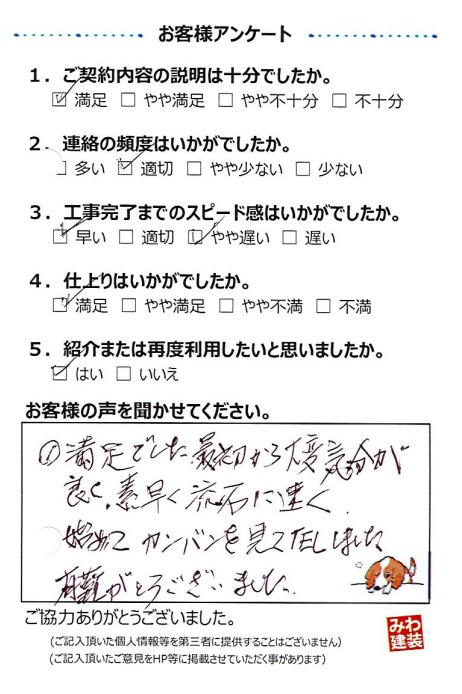 お客様アンケート
１．ご契約内容の説明は十分でしたか。
☑ 満足 □ やや満足 □ やや不十分 □ 不十分
２．連絡の頻度はいかがでしたか。
□ 多い ☑ 適切 □ やや少ない □ 少ない
３．工事完了までのスピード感はいかがでしたか。
☑ 早い □ 適切 ☑ やや遅い □ 遅い
４．仕上りはいかがでしたか。
☑ 満足 □ やや満足 □ やや不満 □ 不満
５．紹介または再度利用したいと思いましたか。
☑ はい □ いいえ
お客様の声を聞かせてください。
① 満足でした 最初から大変気分が
良く、素早く流石に速く
始めて カンバンを見て伝しました
有難がとうございました
ご協力ありがとうございました。
(ご記入頂いた個人情報等を第三者に提供することはございません)
(ご記入頂いたご意見をHP等に掲載させていただく事があります)
みわ
建装